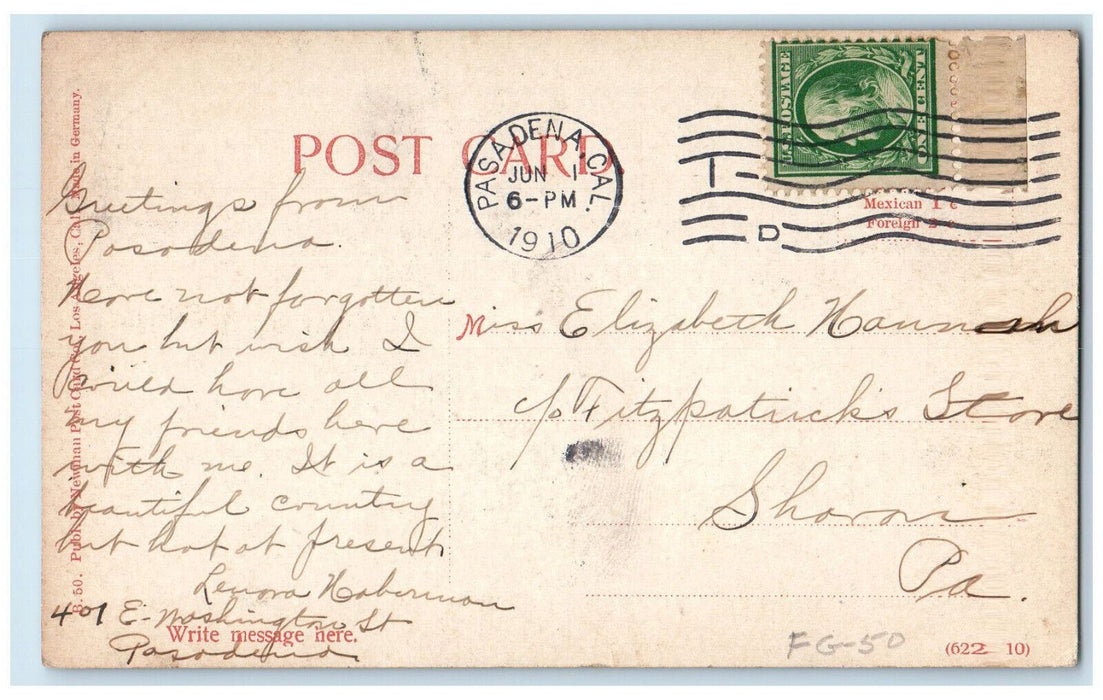 POST CARD.
PASADENA, CAL.
JUN 1
6-PM
1910
D
U.S. POSTAGE
ONE CENT
Mexican 1 c
Foreign 2 c
Greetings from
Pasadena.
Have not forgotten
you but wish I
could have all
my friends here
with me. It is a
beautiful country
but hot at present
Lenora Haberman
401 E. Washington St
Pasadena.
Miss Elizabeth Hannah
c/o Fitzpatrick's Store
Sharon
Pa.
B. 50. Publ. by Newman Post Card Co., Los Angeles, Cal. Made in Germany.
Write message here.
FG-50
(622 10)